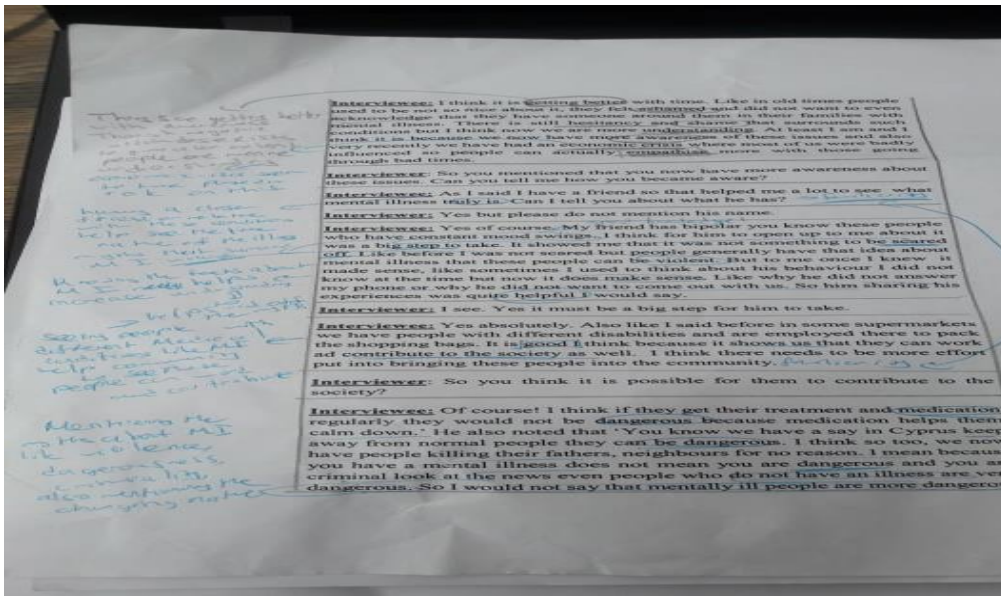 Interviewee: I think it is getting better with time. Like in old times people
used to be not so nice about it, they felt ashamed and did not want to even
acknowledge that they have someone around them in their families with
mental illness. There is still hesitancy and shame that surrounds such
conditions but I think now we are more understanding. At least I am and I
think it is because we now have more awareness of these issues and also
very recently we have had an economic crisis where most of us were badly
influenced so people can actually empathise more with those going
through bad times.
Interviewer: So you mentioned that you now have more awareness about
these issues. Can you tell me how you became aware?
Interviewee: As I said I have a friend so that helped me a lot to see what
mental illness truly is. Can I tell you about what he has?
Interviewer: Yes but please do not mention his name.
Interviewee: Yes of course. My friend has bipolar you know these people
who have constant mood swings. I think for him to open up to me about it
was a big step to take. It showed me that it was not something to be scared
off. Like before I was not scared but people generally have that idea about
mental illness that these people can be violent. But to me once I knew it
made sense, like sometimes I used to think about his behaviour I did not
know at the time but now it does make sense. Like why he did not answer
my phone or why he did not want to come out with us. So him sharing his
experiences was quite helpful I would say.
Interviewer: I see. Yes it must be a big step for him to take.
Interviewee: Yes absolutely. Also like I said before in some supermarkets
we have people with different disabilities and are employed there to pack
the shopping bags. It is good I think because it shows us that they can work
ad contribute to the society as well. I think there needs to be more effort
put into bringing these people into the community.
Interviewer: So you think it is possible for them to contribute to the
society?
Interviewee: Of course! I think if they get their treatment and medication
regularly they would not be dangerous because medication helps them
calm down.' He also noted that 'You know we have a say in Cyprus keep
away from normal people they can be dangerous. I think so too, we now
have people killing their fathers, neighbours for no reason. I mean becaus
you have a mental illness does not mean you are dangerous and you ar
criminal look at the news even people who do not have an illness are ver
dangerous. So I would not say that mentally ill people are more dangerou
getting better
having a close
help
increase
seeing people
different
help community
people can work
and contribute
Mentioning the
about MI
like violence,
dangerousness,
criminality,
also mentioning the
changing